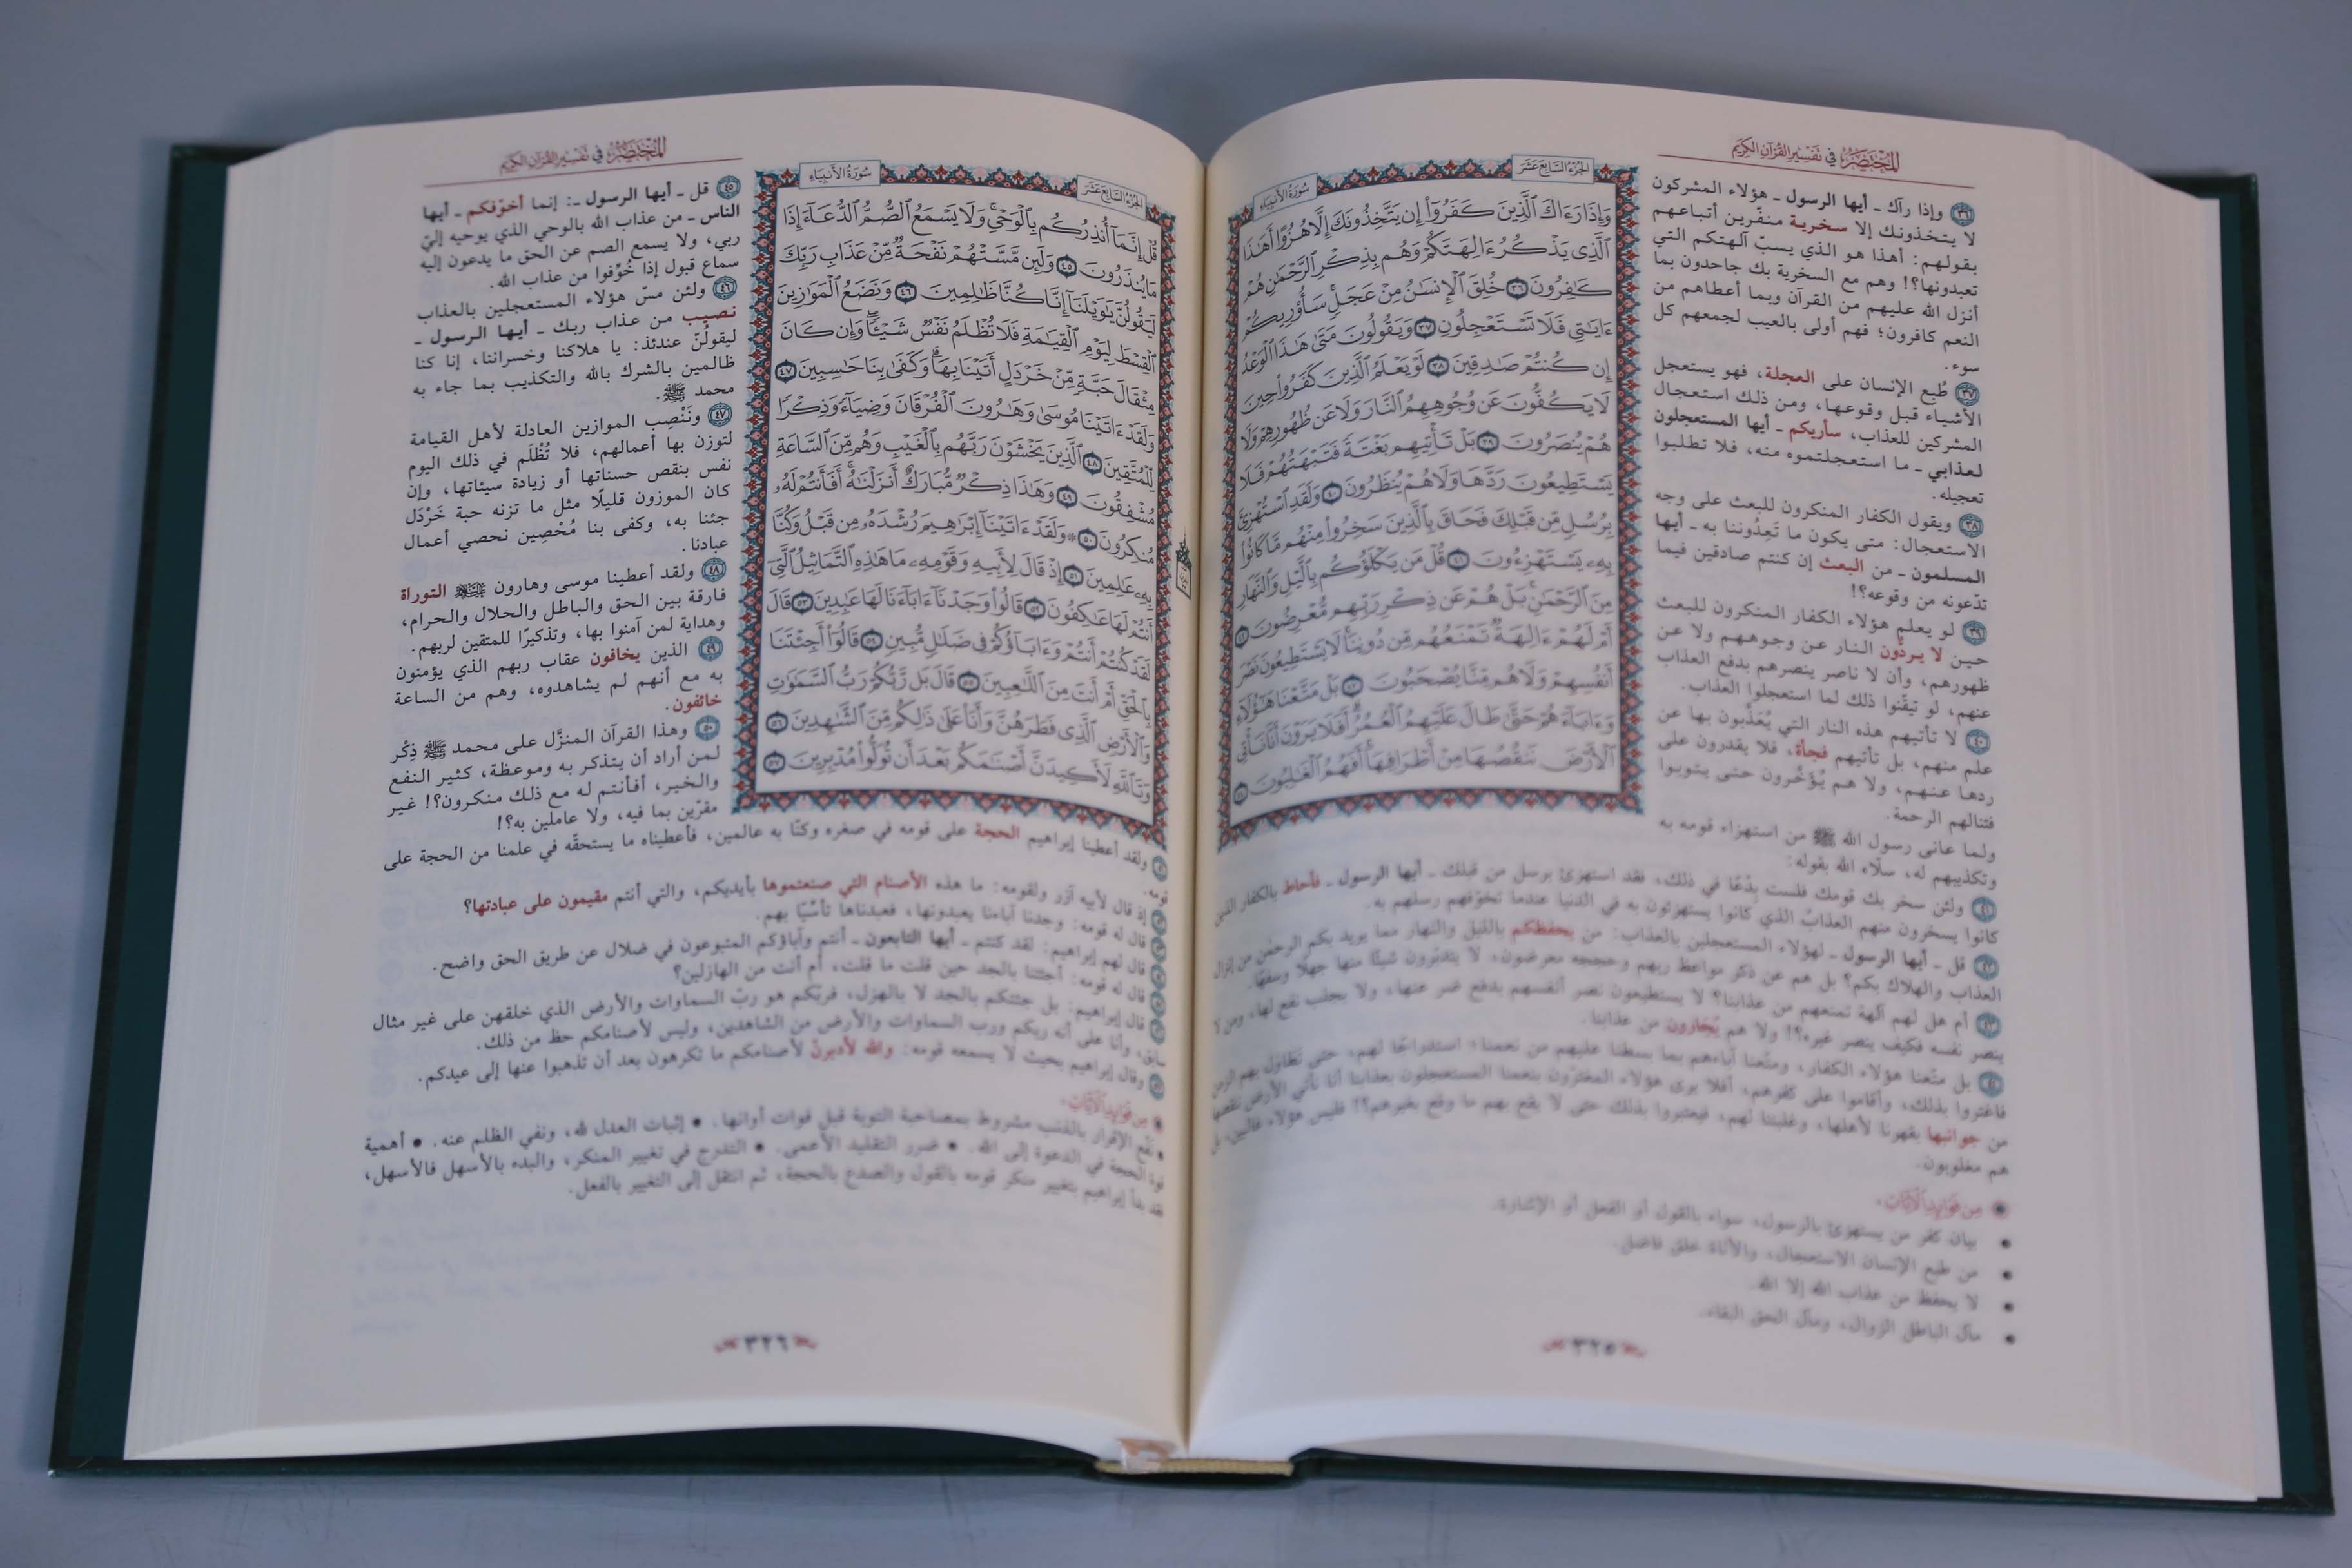 المختصر في تفسير القرآن الكريم
الجزء السابع عشر
سورة الأنبياء
وَإِذَا رَءَاكَ ٱلَّذِينَ كَفَرُوٓا۟ إِن يَتَّخِذُونَكَ إِلَّا هُزُوًا أَهَٰذَا
ٱلَّذِى يَذْكُرُ ءَالِهَتَكُمْ وَهُم بِذِكْرِ ٱلرَّحْمَٰنِ هُمْ
كَٰفِرُونَ ٣٦ خُلِقَ ٱلْإِنسَٰنُ مِنْ عَجَلٍ سَأُو۟رِيكُمْ
ءَايَٰتِى فَلَا تَسْتَعْجِلُونِ ٣٧ وَيَقُولُونَ مَتَىٰ هَٰذَا ٱلْوَعْدُ
إِن كُنتُمْ صَٰدِقِينَ ٣٨ لَوْ يَعْلَمُ ٱلَّذِينَ كَفَرُوا۟ حِينَ
لَا يَكُفُّونَ عَن وُجُوهِهِمُ ٱلنَّارَ وَلَا عَن ظُهُورِهِمْ وَلَا
هُمْ يُنصَرُونَ ٣٩ بَلْ تَأْتِيهِم بَغْتَةً فَتَبْهَتُهُمْ فَلَا
يَسْتَطِيعُونَ رَدَّهَا وَلَا هُمْ يُنظَرُونَ ٤٠ وَلَقَدِ ٱسْتُهْزِئَ
بِرُسُلٍ مِّن قَبْلِكَ فَحَاقَ بِٱلَّذِينَ سَخِرُوا۟ مِنْهُم مَّا كَانُوا۟
بِهِۦ يَسْتَهْزِءُونَ ٤١ قُلْ مَن يَكْلَؤُكُم بِٱلَّيْلِ وَٱلنَّهَارِ
مِنَ ٱلرَّحْمَٰنِ بَلْ هُمْ عَن ذِكْرِ رَبِّهِم مُّعْرِضُونَ ٤٢
أَمْ لَهُمْ ءَالِهَةٌ تَمْنَعُهُم مِّن دُونِنَا لَا يَسْتَطِيعُونَ نَصْرَ
أَنفُسِهِمْ وَلَا هُم مِّنَّا يُصْحَبُونَ ٤٣ بَلْ مَتَّعْنَا هَٰٓؤُلَآءِ
وَءَابَآءَهُمْ حَتَّىٰ طَالَ عَلَيْهِمُ ٱلْعُمُرُ أَفَلَا يَرَوْنَ أَنَّا نَأْتِى
ٱلْأَرْضَ نَنقُصُهَا مِنْ أَطْرَافِهَآ أَفَهُمُ ٱلْغَٰلِبُونَ ٤٤
٣٦ وإذا رآك ـ أيها الرسول ـ هؤلاء المشركون
لا يتخذونك إلا سخرية منفّرين أتباعهم
بقولهم: أهذا هو الذي يسبّ آلهتكم التي
تعبدونها؟! وهم مع السخرية بك جاحدون بما
أنزل الله عليهم من القرآن وبما أعطاهم من
النعم كافرون؛ فهم أولى بالعيب لجمعهم كل
سوء.
٣٧ طُبِع الإنسان على العجلة، فهو يستعجل
الأشياء قبل وقوعها، ومن ذلك استعجال
المشركين للعذاب، سأريكم ـ أيها المستعجلون
لعذابي ـ ما استعجلتموه منه، فلا تطلبوا
تعجيله.
٣٨ ويقول الكفار المنكرون للبعث على وجه
الاستعجال: متى يكون ما تَعِدُوننا به ـ أيها
المسلمون ـ من البعث إن كنتم صادقين فيما
تدّعونه من وقوعه؟!
٣٩ لو يعلم هؤلاء الكفار المنكرون للبعث
حين لا يردُّون النار عن وجوههم ولا عن
ظهورهم، وأن لا ناصر ينصرهم بدفع العذاب
عنهم، لو تيقّنوا ذلك لما استعجلوا العذاب.
٤٠ لا تأتيهم هذه النار التي يُعَذَّبون بها عن
علم منهم، بل تأتيهم فجأة، فلا يقدرون على
ردها عنهم، ولا هم يُؤَخَّرون حتى يتوبوا
فتنالهم الرحمة.
ولما عانى رسول الله ﷺ من استهزاء قومه به
وتكذيبهم له، سلّاه الله بقوله:
٤١ ولئن سخر بك قومك فلست بِدْعًا في ذلك، فقد استهزئ برسل من قبلك ـ أيها الرسول ـ فأحاط بالكفار الذين
كانوا يسخرون منهم العذابُ الذي كانوا يستهزئون به في الدنيا عندما تخوّفهم رسلهم به.
٤٢ قل ـ أيها الرسول ـ لهؤلاء المستعجلين بالعذاب: من يحفظكم بالليل والنهار مما يريد بكم الرحمٰن من إنزال
العذاب والهلاك بكم؟ بل هم عن ذكر مواعظ ربهم وحججه معرضون، لا يتدبّرون شيئًا منها جهلًا وسفهًا.
٤٣ أم هل لهم آلهة تمنعهم من عذابنا؟ لا يستطيعون نصر أنفسهم بدفع ضر عنها، ولا بجلب نفع لها، ومن لا
ينصر نفسه فكيف ينصر غيره؟! ولا هم يُجَارون من عذابنا.
٤٤ بل متّعنا هؤلاء الكفار، ومتّعنا آباءهم بما بسطنا عليهم من نعمنا؛ استدراجًا لهم، حتى تطاول بهم الزمن
فاغتروا بذلك، وأقاموا على كفرهم، أفلا يرى هؤلاء المغترّون بنعمنا المستعجلون بعذابنا أنا نأتي الأرض ننقصها
من جوانبها بقهرنا لأهلها، وغلبتنا لهم، فيعتبروا بذلك حتى لا يقع بهم ما وقع بغيرهم؟! فليس هؤلاء غالبين، بل
هم مغلوبون.
من فوائد الآيات
• بيان كفر من يستهزئ بالرسول، سواء بالقول أو الفعل أو الإشارة.
• من طبع الإنسان الاستعجال، والأناة خلق فاضل.
• لا يحفظ من عذاب الله إلا الله.
• مآل الباطل الزوال، ومآل الحق البقاء.
٣٢٥
المختصر في تفسير القرآن الكريم
الجزء السابع عشر
سورة الأنبياء
قُلْ إِنَّمَآ أُنذِرُكُم بِٱلْوَحْىِ وَلَا يَسْمَعُ ٱلصُّمُّ ٱلدُّعَآءَ إِذَا
مَا يُنذَرُونَ ٤٥ وَلَئِن مَّسَّتْهُمْ نَفْحَةٌ مِّنْ عَذَابِ رَبِّكَ
لَيَقُولُنَّ يَٰوَيْلَنَآ إِنَّا كُنَّا ظَٰلِمِينَ ٤٦ وَنَضَعُ ٱلْمَوَٰزِينَ
ٱلْقِسْطَ لِيَوْمِ ٱلْقِيَٰمَةِ فَلَا تُظْلَمُ نَفْسٌ شَيْـًٔا وَإِن كَانَ
مِثْقَالَ حَبَّةٍ مِّنْ خَرْدَلٍ أَتَيْنَا بِهَا وَكَفَىٰ بِنَا حَٰسِبِينَ ٤٧
وَلَقَدْ ءَاتَيْنَا مُوسَىٰ وَهَٰرُونَ ٱلْفُرْقَانَ وَضِيَآءً وَذِكْرًا
لِّلْمُتَّقِينَ ٤٨ ٱلَّذِينَ يَخْشَوْنَ رَبَّهُم بِٱلْغَيْبِ وَهُم مِّنَ ٱلسَّاعَةِ
مُشْفِقُونَ ٤٩ وَهَٰذَا ذِكْرٌ مُّبَارَكٌ أَنزَلْنَٰهُ أَفَأَنتُمْ لَهُۥ
مُنكِرُونَ ٥٠ ۞ وَلَقَدْ ءَاتَيْنَآ إِبْرَٰهِيمَ رُشْدَهُۥ مِن قَبْلُ وَكُنَّا
بِهِۦ عَٰلِمِينَ ٥١ إِذْ قَالَ لِأَبِيهِ وَقَوْمِهِۦ مَا هَٰذِهِ ٱلتَّمَاثِيلُ ٱلَّتِىٓ
أَنتُمْ لَهَا عَٰكِفُونَ ٥٢ قَالُوا۟ وَجَدْنَآ ءَابَآءَنَا لَهَا عَٰبِدِينَ ٥٣ قَالَ
لَقَدْ كُنتُمْ أَنتُمْ وَءَابَآؤُكُمْ فِى ضَلَٰلٍ مُّبِينٍ ٥٤ قَالُوٓا۟ أَجِئْتَنَا
بِٱلْحَقِّ أَمْ أَنتَ مِنَ ٱللَّٰعِبِينَ ٥٥ قَالَ بَل رَّبُّكُمْ رَبُّ ٱلسَّمَٰوَٰتِ
وَٱلْأَرْضِ ٱلَّذِى فَطَرَهُنَّ وَأَنَا۠ عَلَىٰ ذَٰلِكُم مِّنَ ٱلشَّٰهِدِينَ ٥٦
وَتَٱللَّهِ لَأَكِيدَنَّ أَصْنَٰمَكُم بَعْدَ أَن تُوَلُّوا۟ مُدْبِرِينَ ٥٧
٤٥ قل ـ أيها الرسول ـ: إنما أخوّفكم ـ أيها
الناس ـ من عذاب الله بالوحي الذي يوحيه إليّ
ربي، ولا يسمع الصم عن الحق ما يدعون إليه
سماع قبول إذا خُوِّفوا من عذاب الله.
٤٦ ولئن مسّ هؤلاء المستعجلين بالعذاب
نصيب من عذاب ربك ـ أيها الرسول ـ
ليقولُنّ عندئذ: يا هلاكنا وخسراننا، إنا كنا
ظالمين بالشرك بالله والتكذيب بما جاء به
محمد ﷺ.
٤٧ ونَنْصِب الموازين العادلة لأهل القيامة
لتوزن بها أعمالهم، فلا تُظْلَم في ذلك اليوم
نفس بنقص حسناتها أو زيادة سيئاتها، وإن
كان الموزون قليلًا مثل ما تزنه حبة خَرْدَل
جئنا به، وكفى بنا مُحْصِين نحصي أعمال
عبادنا.
٤٨ ولقد أعطينا موسى وهارون التوراة
فارقة بين الحق والباطل والحلال والحرام،
وهداية لمن آمنوا بها، وتذكيرًا للمتقين لربهم.
٤٩ الذين يخافون عقاب ربهم الذي يؤمنون
به مع أنهم لم يشاهدوه، وهم من الساعة
خائفون.
٥٠ وهذا القرآن المنزَّل على محمد ﷺ ذِكْر
لمن أراد أن يتذكر به وموعظة، كثير النفع
والخير، أفأنتم له مع ذلك منكرون؟! غير
مقرّين بما فيه، ولا عاملين به؟!
٥١ ولقد أعطينا إبراهيم الحجة على قومه في صغره وكنّا به عالمين، فأعطيناه ما يستحقّه في علمنا من الحجة على
قومه.
٥٢ إذ قال لأبيه آزر ولقومه: ما هذه الأصنام التي صنعتموها بأيديكم، والتي أنتم مقيمون على عبادتها؟
٥٣ قال له قومه: وجدنا آباءنا يعبدونها، فعبدناها تأسّيًا بهم.
٥٤ قال لهم إبراهيم: لقد كنتم ـ أيها التابعون ـ أنتم وآباؤكم المتبوعون في ضلال عن طريق الحق واضح.
٥٥ قال له قومه: أجئتنا بالجد حين قلت ما قلت، أم أنت من الهازلين؟
٥٦ قال إبراهيم: بل جئتكم بالجد لا بالهزل، فربّكم هو ربّ السماوات والأرض الذي خلقهن على غير مثال
سابق، وأنا على أنه ربكم ورب السماوات والأرض من الشاهدين، وليس لأصنامكم حظ من ذلك.
٥٧ وقال إبراهيم بحيث لا يسمعه قومه: والله لأدبرنّ لأصنامكم ما تكرهون بعد أن تذهبوا عنها إلى عيدكم.
من فوائد الآيات
• نَفْع الإقرار بالذنب مشروط بمصاحبة التوبة قبل فوات أوانها. • إثبات العدل لله، ونفي الظلم عنه. • أهمية
قوة الحجة في الدعوة إلى الله. • ضرر التقليد الأعمى. • التدرج في تغيير المنكر، والبدء بالأسهل فالأسهل،
فقد بدأ إبراهيم بتغيير منكر قومه بالقول والصدع بالحجة، ثم انتقل إلى التغيير بالفعل.
٣٢٦